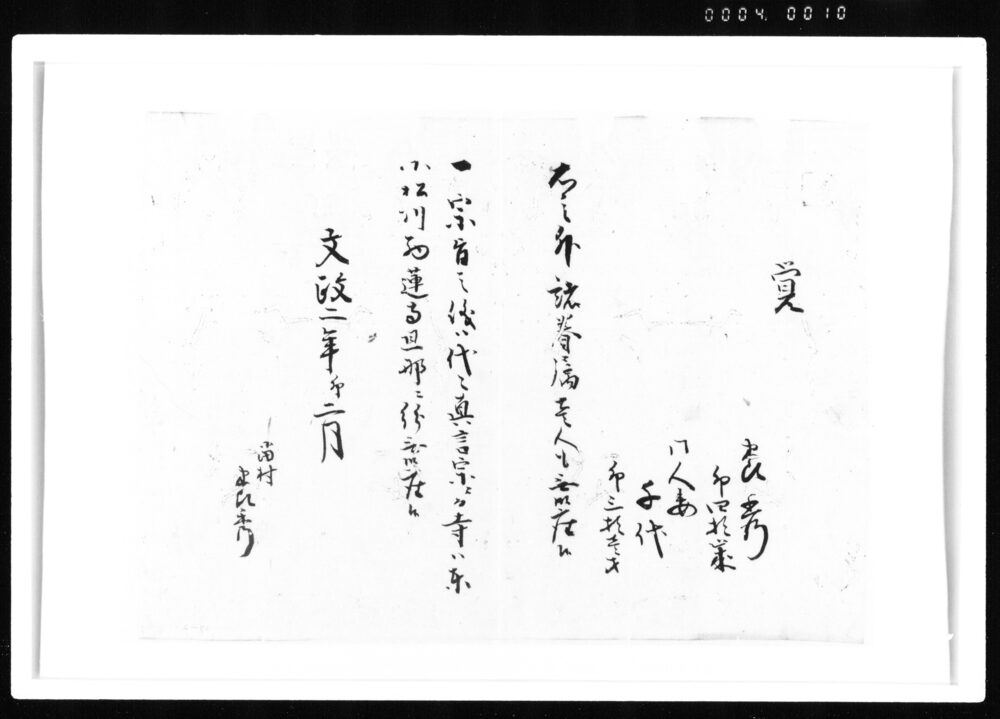 0004. 0010
覚
良秀
卯四拾歳
同人妻
千代
卯三拾壱才
右之外諸眷属壱人も無御座候
一 宗旨之儀ハ代々真言宗ニ而寺ハ東
小松川西蓮寺旦那ニ紛無御座候
文政二年卯二月
当村
良秀